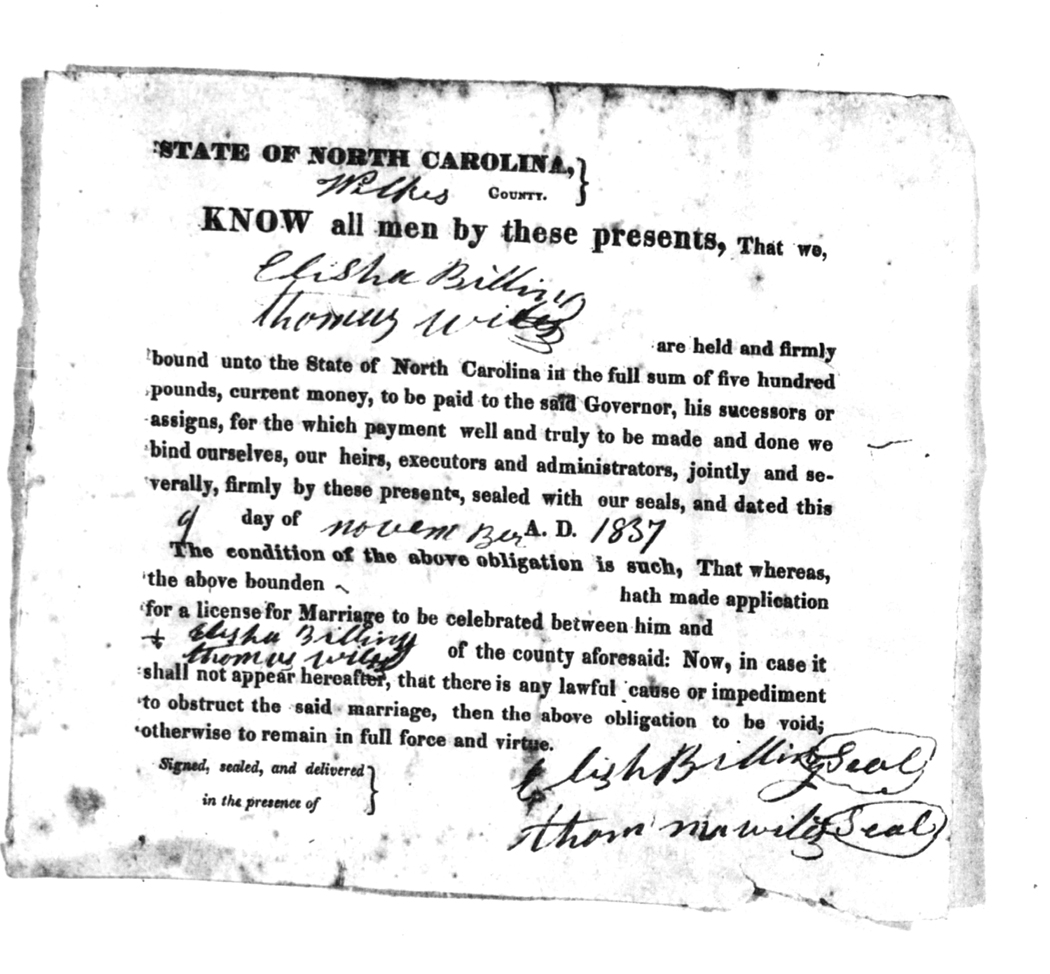 STATE OF NORTH CAROLINA,
Wilkes COUNTY.
KNOW all men by these presents, That we,
Elisha Billings
thomas wiles
are held and firmly
bound unto the State of North Carolina in the full sum of five hundred
pounds, current money, to be paid to the said Governor, his sucessors or
assigns, for the which payment well and truly to be made and done we
bind ourselves, our heirs, executors and administrators, jointly and se-
verally, firmly by these presents, sealed with our seals, and dated this
9 day of novem Ber A. D. 1837
The condition of the above obligation is such, That whereas,
the above bounden hath made application
for a license for Marriage to be celebrated between him and
Elisha Billings
thomas wiles of the county aforesaid: Now, in case it
shall not appear hereafter, that there is any lawful cause or impediment
to obstruct the said marriage, then the above obligation to be void;
otherwise to remain in full force and virtue.
Signed, sealed, and delivered
in the presence of
Elish Billings Seal
thom wiles Seal